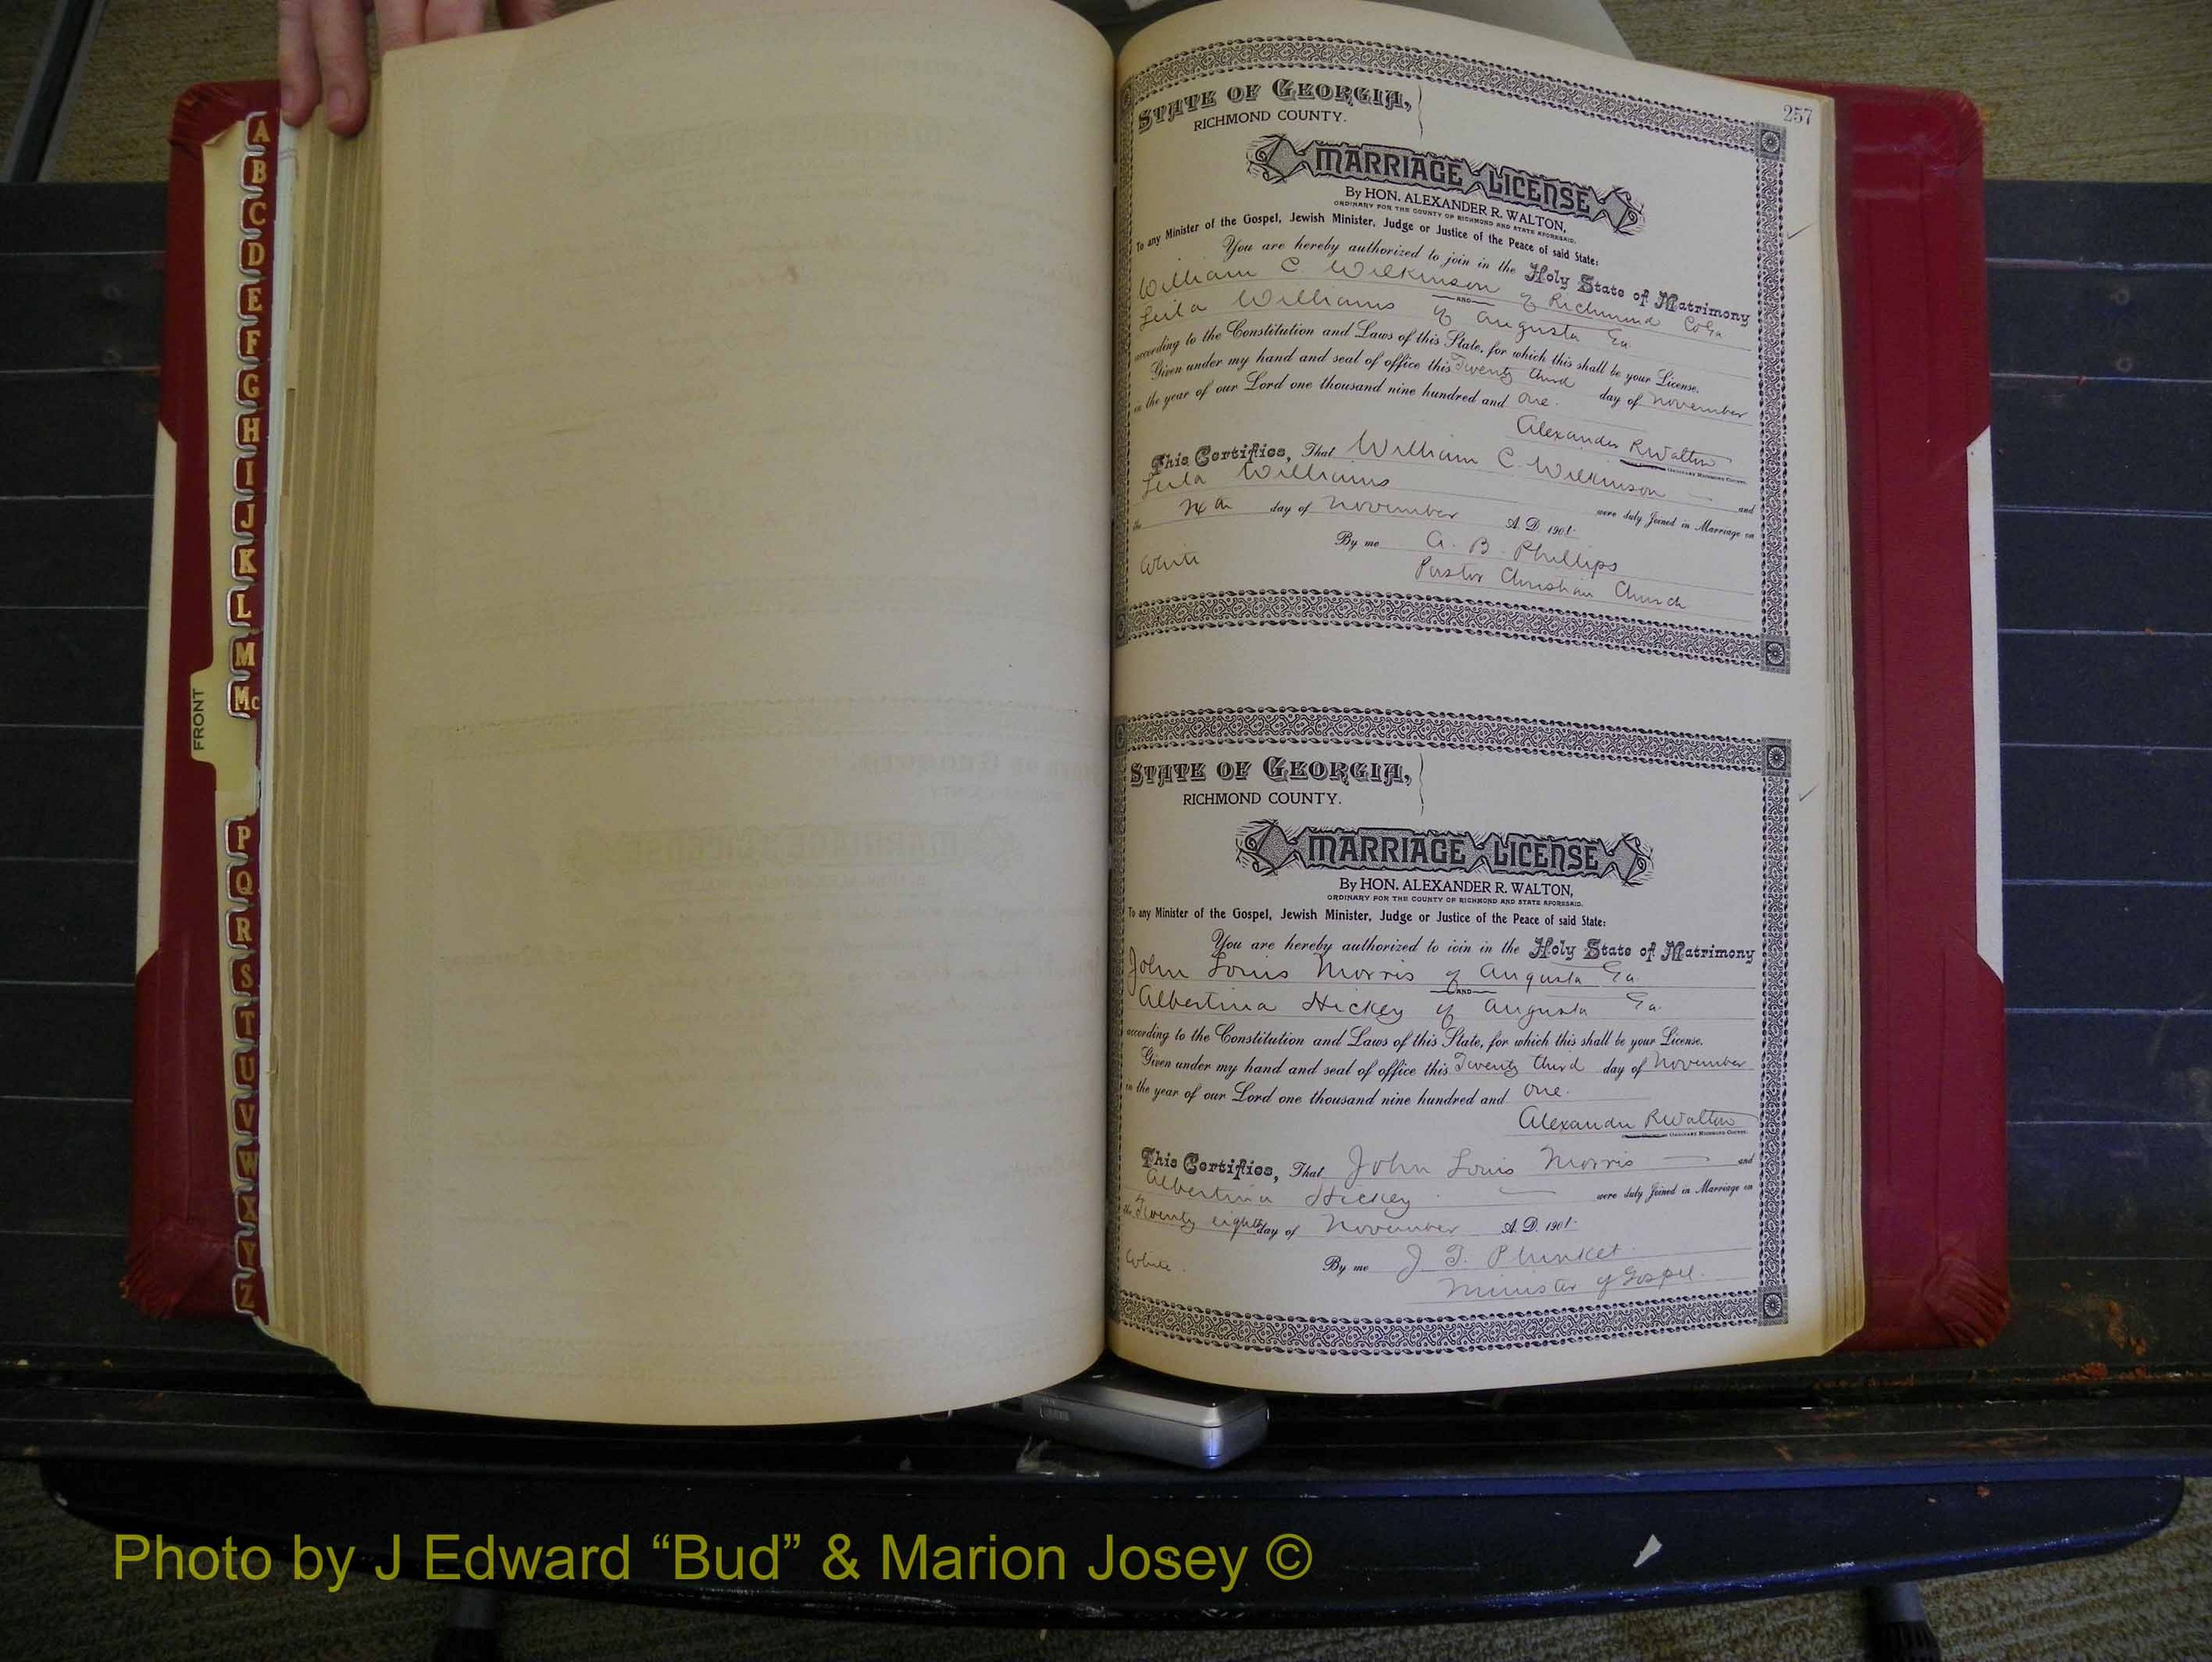 A
B
C
D
E
F
G
H
I
J
K
L
M
Mc
FRONT
P
Q
R
S
T
U
V
W
X
Y
Z
257
STATE OF GEORGIA,
RICHMOND COUNTY.
MARRIAGE LICENSE
By HON. ALEXANDER R. WALTON,
ORDINARY FOR THE COUNTY OF RICHMOND AND STATE AFORESAID.
To any Minister of the Gospel, Jewish Minister, Judge or Justice of the Peace of said State:
You are hereby authorized to join in the Holy State of Matrimony
William C. Wilkinson of Richmond Co Ga
AND
Leila Williams of Augusta Ga
according to the Constitution and Laws of this State, for which this shall be your License.
Given under my hand and seal of office this Twenty third day of November
in the year of our Lord one thousand nine hundred and One.
Alexander R Walton
ORDINARY RICHMOND COUNTY.
This Certifies, That William C. Wilkinson and
Leila Williams were duly Joined in Marriage on
the day of November A. D. 1901.
By me A. B. Phillips
White Pastor Christian Church
STATE OF GEORGIA,
RICHMOND COUNTY.
MARRIAGE LICENSE
By HON. ALEXANDER R. WALTON,
ORDINARY FOR THE COUNTY OF RICHMOND AND STATE AFORESAID.
To any Minister of the Gospel, Jewish Minister, Judge or Justice of the Peace of said State:
You are hereby authorized to join in the Holy State of Matrimony
John Louis Morris of Augusta Ga
AND
Albertina Hickey of Augusta Ga.
according to the Constitution and Laws of this State, for which this shall be your License.
Given under my hand and seal of office this Twenty third day of November
in the year of our Lord one thousand nine hundred and One.
Alexander R Walton
ORDINARY RICHMOND COUNTY.
This Certifies, That John Louis Morris and
Albertina Hickey were duly Joined in Marriage on
the Twenty eighth day of November A. D. 1901.
White. By me J. T. Plunket
Minister of Gospel.
Photo by J Edward “Bud” & Marion Josey ©